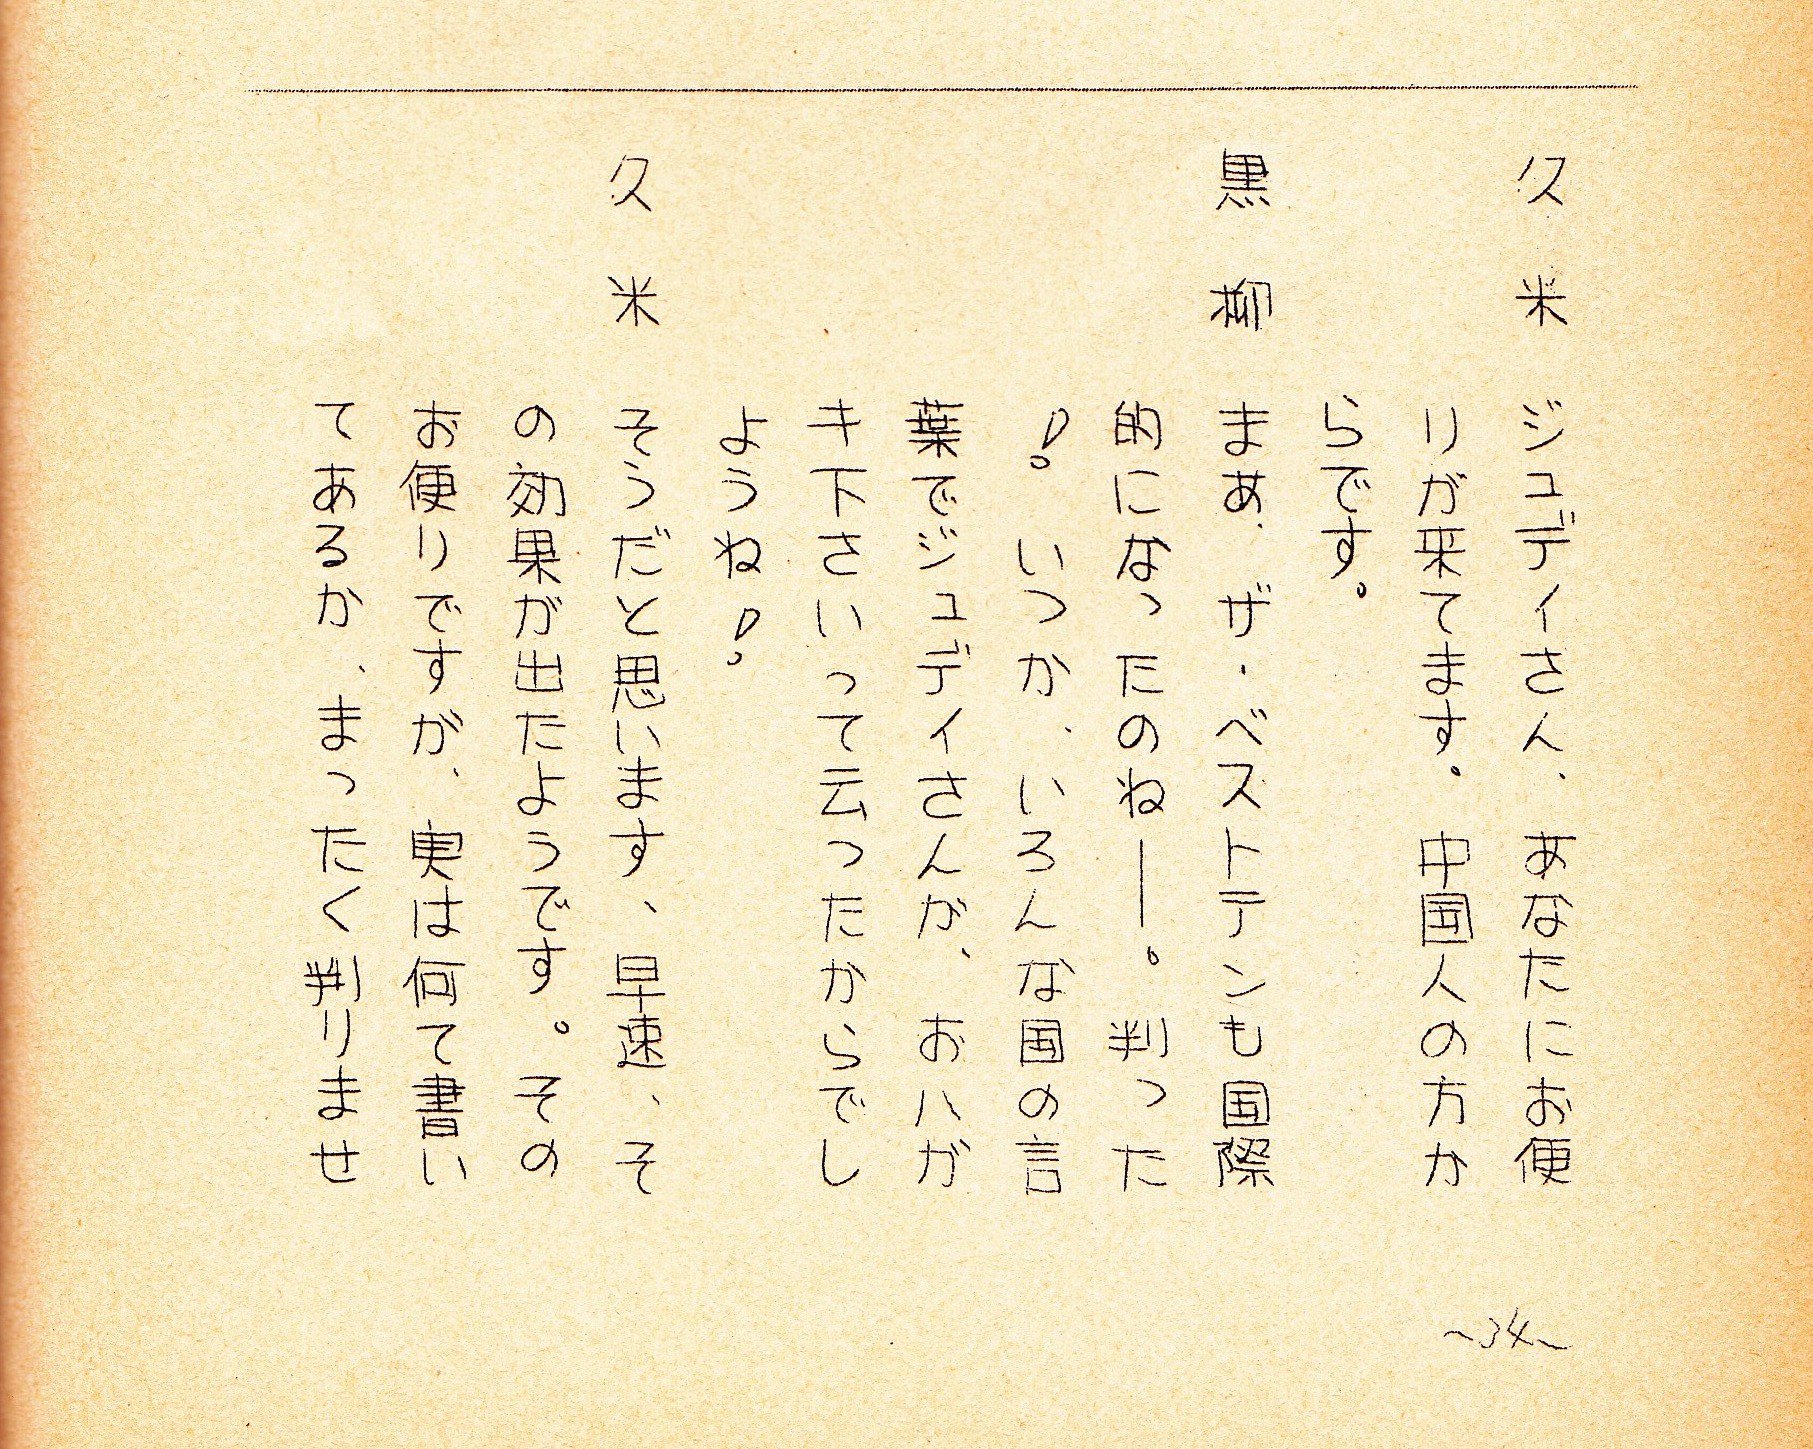 久米 ジュディさん、あなたにお便
りが来てます。中国人の方か
らです。
黒柳 まあ、ザ・ベストテンも国際
的になったのねー。判った
！。いつか、いろんな国の言
葉でジュディさんが、おハガ
キ下さいって云ったからでし
ようね！。
久米 そうだと思います、早速、そ
の効果が出たようです。その
お便りですが、実は何て書い
てあるか、まったく判りませ
～34～